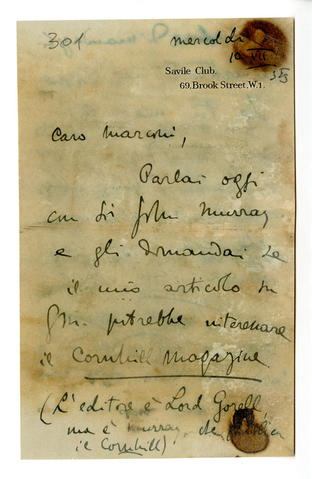 301
mercoledì
10 VII
Savile Club.
69, Brook Street, W.1.
Caro Marconi,
Parlai oggi
con Sir John Murray
e gli domandai se
il mio articolo su
potrebbe interessare
il Cornhill Magazine
(L'editore è Lord Gorell,
ma è Murray, che
il Cornhill)